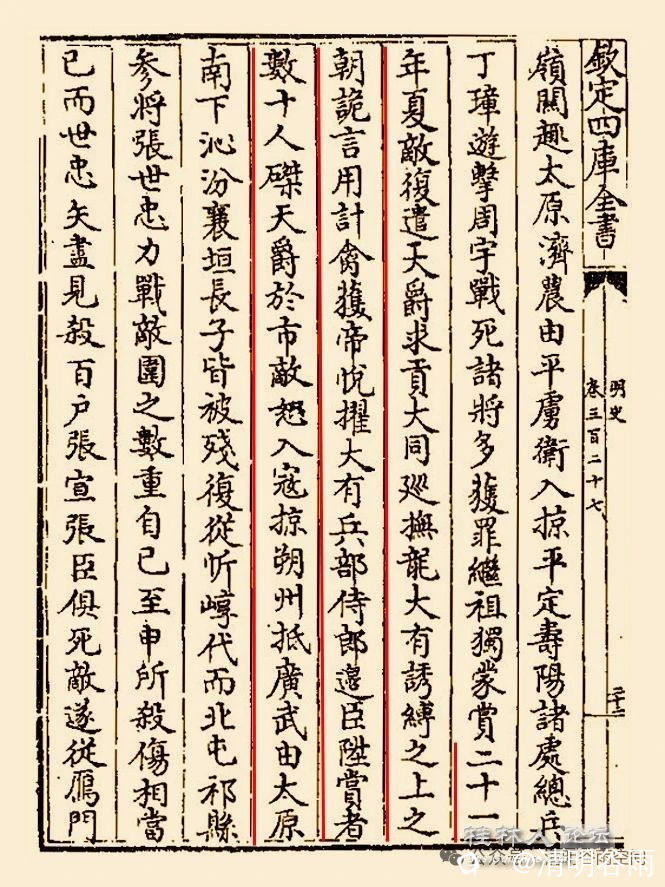 欽定四庫全書
明史
卷三百二十七
嶺關趣太原濟農由平虜衛入掠平定壽陽諸處總兵
丁璋遊擊周宇戰死諸將多獲罪繼祖獨蒙賞二十一
年夏敵復遣天爵求貢大同廵撫龍大有誘縛之上之
朝詭言用計禽獲帝悅擢大有兵部侍郎邉臣陞賞者
數十人磔天爵於市敵怒入寇掠朔州抵廣武由太原
南下沁汾襄垣長子皆被殘復從忻崞代而北屯祁縣
參將張世忠力戰敵圍之數重自巳至申所殺傷相當
已而世忠矢盡見殺百户張宣張臣俱死敵遂從鴈門
桂林人论坛
公众号
@清明谷雨